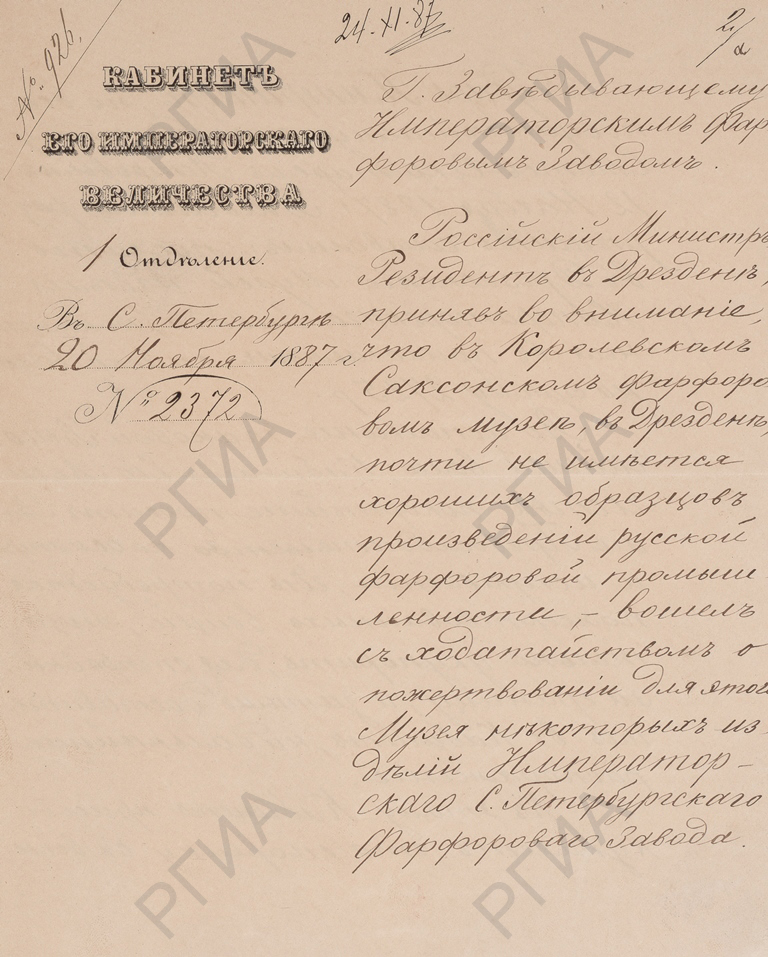 № 926.
24.XI.87
2/
а
КАБИНЕТЪ
ЕГО ИМПЕРАТОРСКАГО
ВЕЛИЧЕСТВА
1 Отдѣленіе.
Въ С. Петербургѣ
20 Ноября 1887 г.
№ 2372
Г. Завѣдывающему
Императорскимъ Фар
форовымъ Заводомъ.
Россійскій Министръ
Резидентъ въ Дрезденѣ,
принявъ во вниманіе,
что въ Королевскомъ
Саксонскомъ фарфоро
вомъ музеѣ, въ Дрезденѣ,
почти не имѣется
хорошихъ образцовъ
произведеній русской
фарфоровой промыш
ленности, – вошелъ
съ ходатайствомъ о
пожертвованіи для этого
Музея нѣкоторыхъ из
дѣлій Император-
скаго С. Петербургскаго
Фарфороваго Завода.
РГИА
РГИА
РГИА
РГИА
РГИА
РГИА